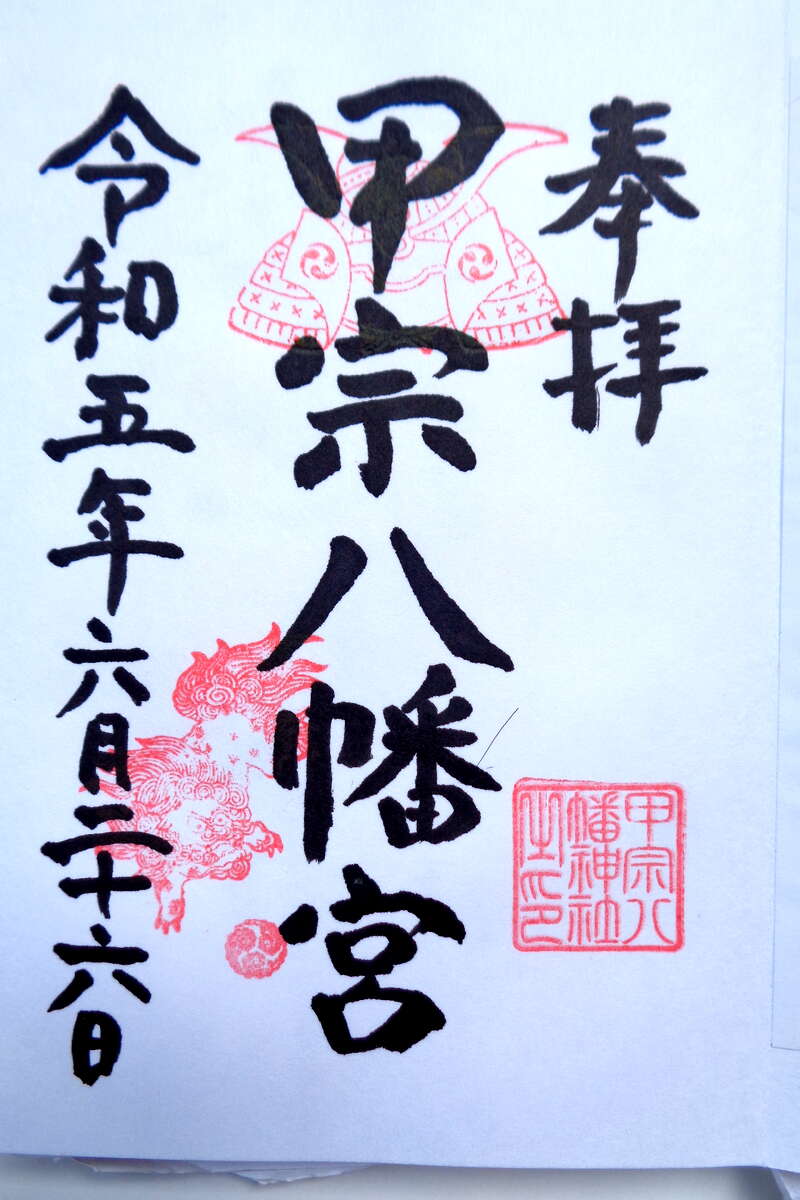 奉拝
甲宗八幡宮
甲宗八
幡神社
之印
令和五年六月二十六日